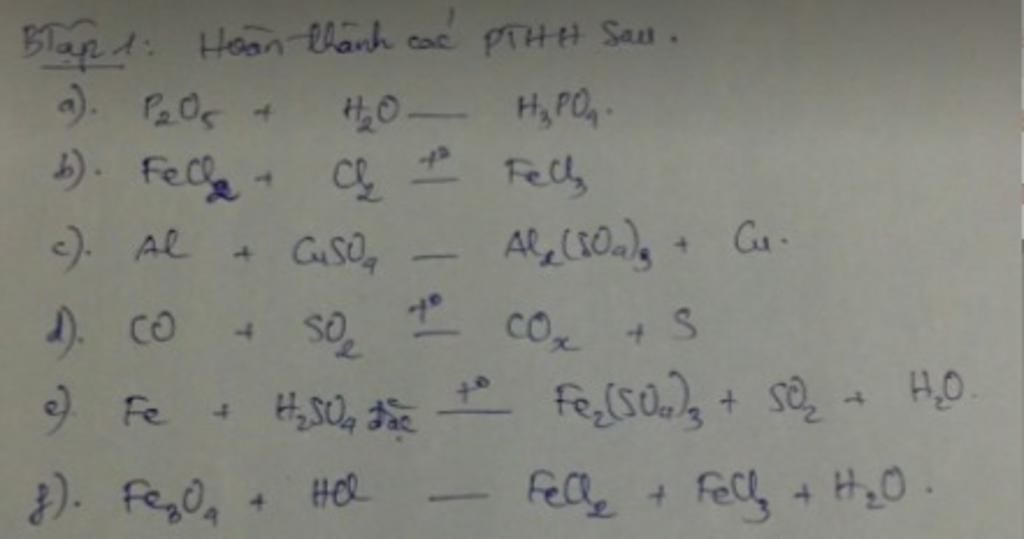 BTập 1: Hoàn thành các PTHH Sau.
a). P₂O₅ + H₂O — H₃PO₄.
b). FeCl₂ + Cl₂ —t⁰— FeCl₃
c). Al + CuSO₄ — Al₂(SO₄)₃ + Cu.
d). CO + SO₂ —t⁰— COₓ + S
e) Fe + H₂SO₄ đặc —t⁰— Fe₂(SO₄)₃ + SO₂ + H₂O.
f). Fe₃O₄ + HCl — FeCl₂ + FeCl₃ + H₂O.